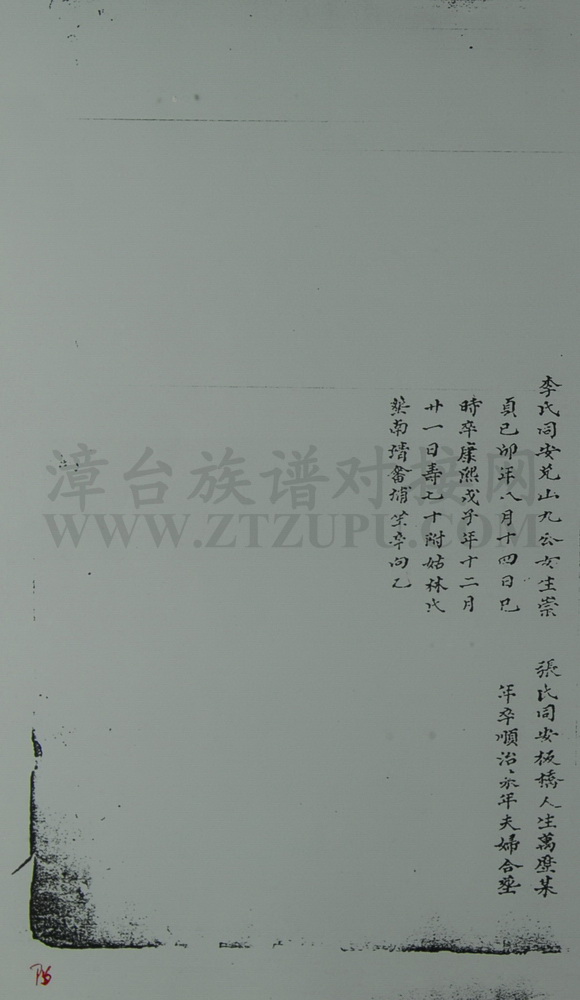 李氏同安兌山九公女生崇
貞己卯年八月十四日巳
時卒康熙戊子年十二月
廿一日壽七十附姑林氏
塟南靖畲埔坐辛向乙
張氏同安板橋人生萬歷某
年卒順治、年夫婦合塟
漳台族谱对接网
WWW.ZTZUPU.COM